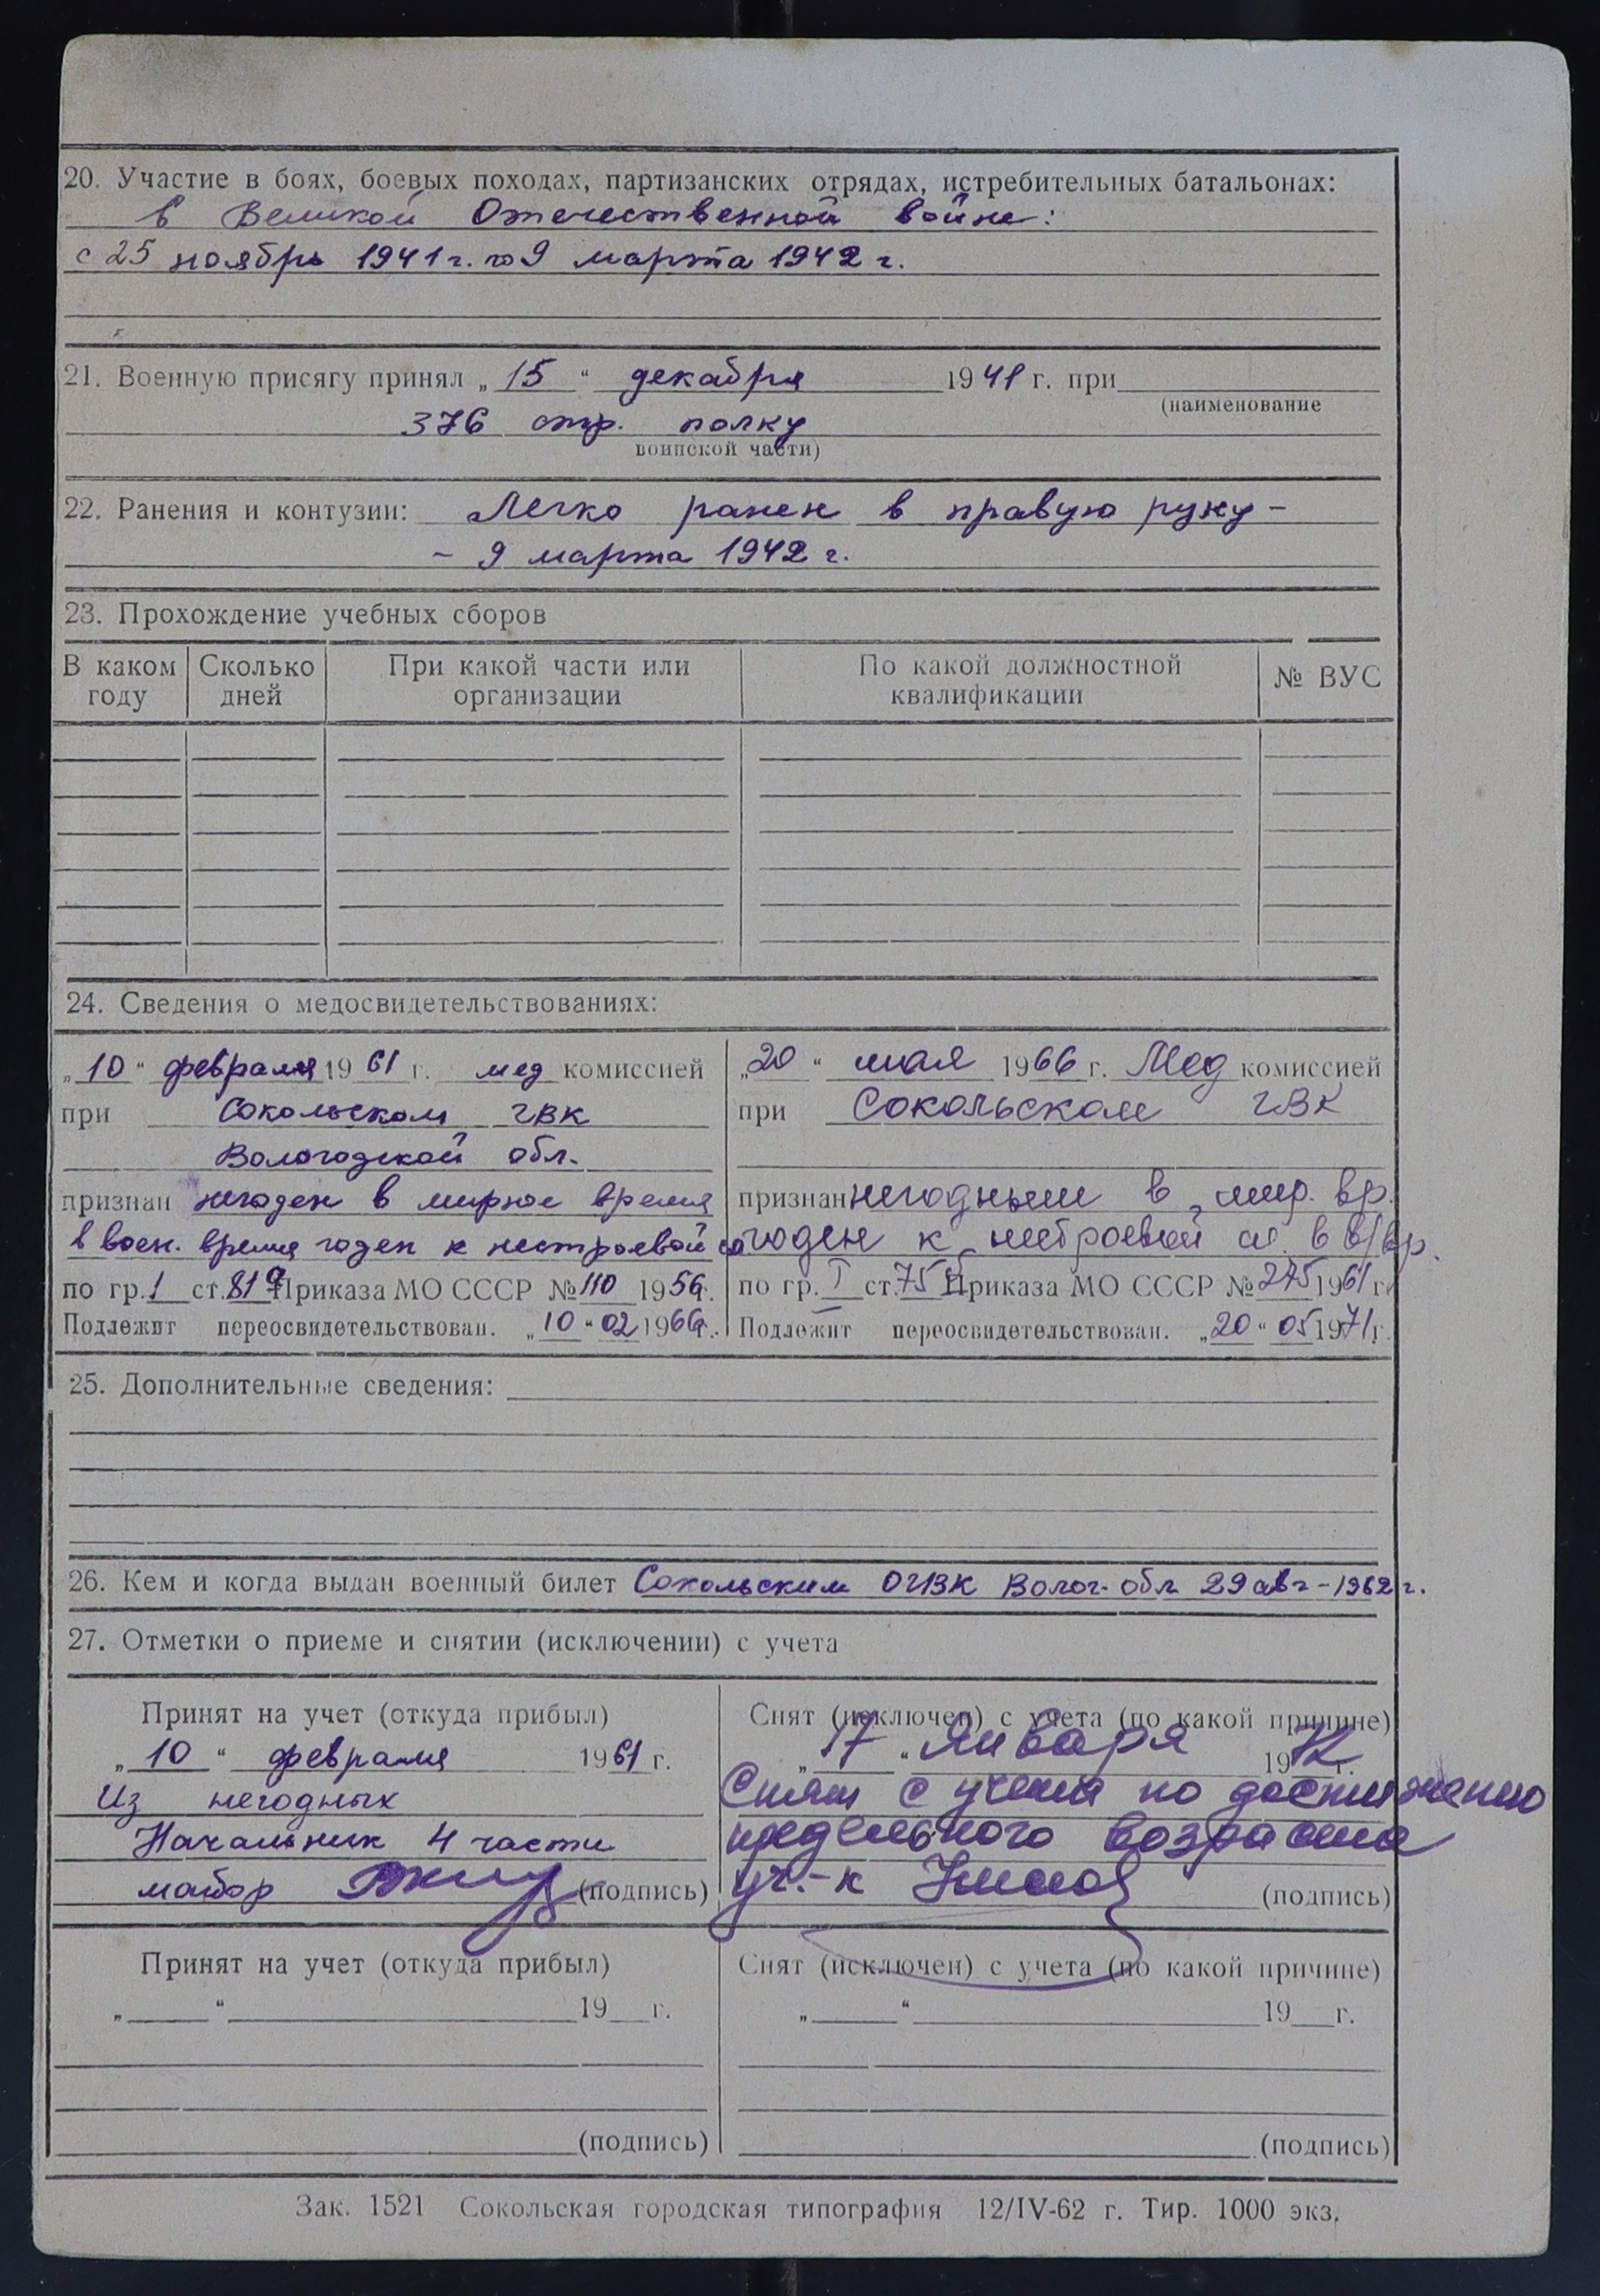 20. Участие в боях, боевых походах, партизанских отрядах, истребительных батальонах:
в Великой Отечественной войне:
с 25 ноябрь 1941 г. по 9 марта 1942 г.
21. Военную присягу принял „15“ декабря 1941 г. при
(наименование
376 стр. полку
воинской части)
22. Ранения и контузии: Легко ранен в правую руку –
– 9 марта 1942 г.
23. Прохождение учебных сборов
В каком году | Сколько дней | При какой части или организации | По какой должностной квалификации | № ВУС
24. Сведения о медосвидетельствованиях:
„10“ февраля 1961 г. мед комиссией
при Сокольском ГВК
Вологодской обл.
признан негоден в мирное время
в воен. время годен к нестроевой сл
по гр. 1 ст. 81 Приказа МО СССР № 110 1956г.
Подлежит переосвидетельствован. „10“ 02 1966г.
„20“ мая 1966 г. Мед комиссией
при Сокольском ГВК
признан негодным в мир. вр.
годен к нестроевой сл. в в/вр.
по гр. I ст. 75 Приказа МО СССР № 275 1961 г.
Подлежит переосвидетельствован. „20“ 05 1971г.
25. Дополнительные сведения:
26. Кем и когда выдан военный билет Сокольским ОГВК Волог. обл 29 авг – 1962 г.
27. Отметки о приеме и снятии (исключении) с учета
Принят на учет (откуда прибыл)
„10“ февраля 1961 г.
Из негодных
Начальник 4 части
майор (подпись)
Снят (исключен) с учета (по какой причине)
„17“ января 1972 г.
Снят с учета по достижению
предельного возраста
(подпись)
Принят на учет (откуда прибыл)
„ “ 19 г.
(подпись)
Снят (исключен) с учета (по какой причине)
„ “ 19 г.
(подпись)
Зак. 1521 Сокольская городская типография 12/IV-62 г. Тир. 1000 экз.